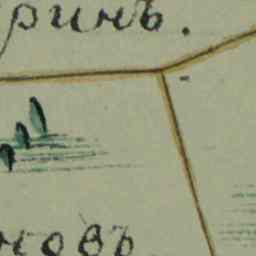 ринъ.
новъ